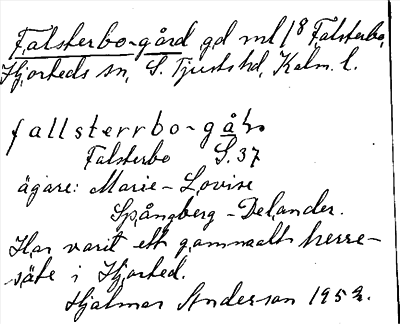 Falsterbo-gård gd ml 1/8 Falsterbo,
Hjorteds sn, S. Tjusts hd, Kalm. l.
fallsterrbo-gå̱ɽ
Falsterbo S. 37
ägare: Marie-Lovise
Spångberg-Delander.
Har varit ett gammalt herre-
säte i Hjorted.
Hjalmar Anderson 1952.